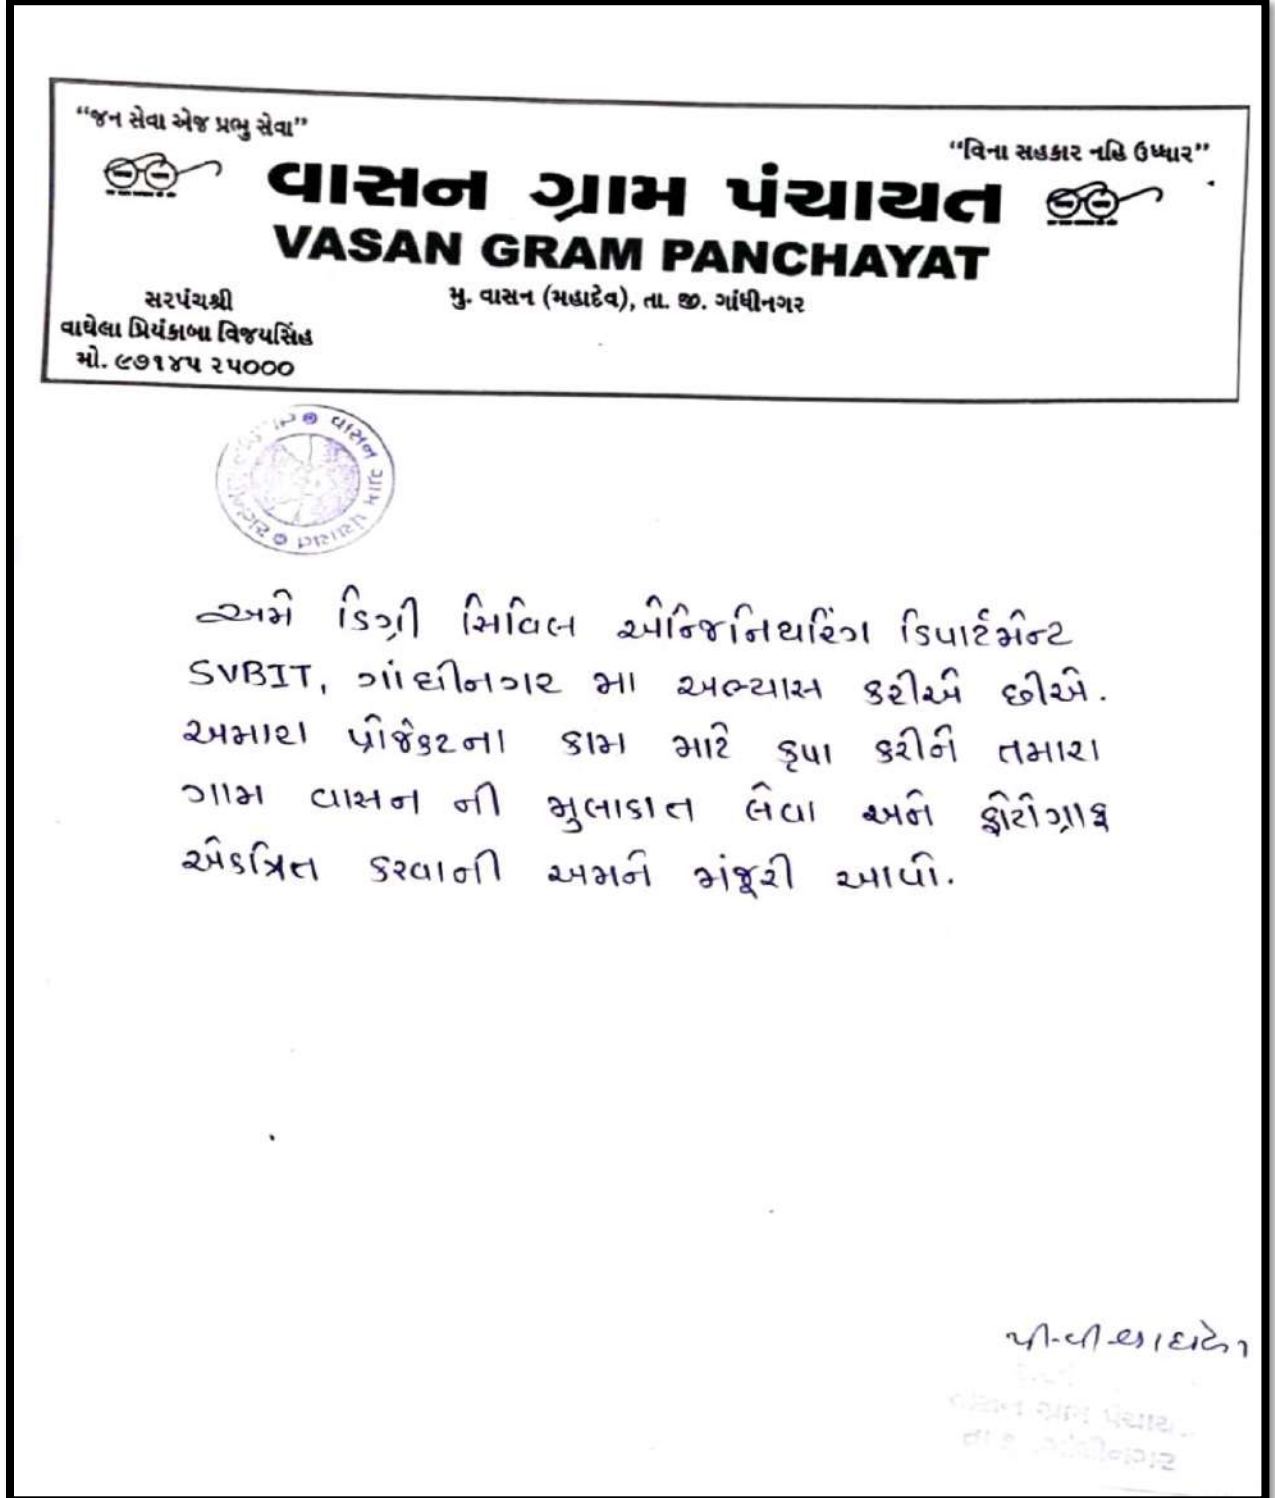 “જન સેવા એજ પ્રભુ સેવા”
“વિના સહકાર નહિ ઉધ્ધાર”
વાસન ગ્રામ પંચાયત
VASAN GRAM PANCHAYAT
મુ. વાસન (મહાદેવ), તા. જી. ગાંધીનગર
સરપંચશ્રી
વાઘેલા પ્રિયંકાબા વિજયસિંહ
મો. ૯૭૧૪૫ ૨૫૦૦૦
વાસન ગ્રામ પંચાયત
અમે ડિગ્રી સિવિલ એન્જિનિયરિંગ ડિપાર્ટમેન્ટ
SVBIT, ગાંધીનગર મા અભ્યાસ કરીએ છીએ.
અમારા પ્રોજેક્ટના કામ માટે કૃપા કરીને તમારા
ગામ વાસન ની મુલાકાત લેવા અને ફોટોગ્રાફ
એકત્રિત કરવાની અમને મંજૂરી આપો.
વાસન ગ્રામ પંચાયત